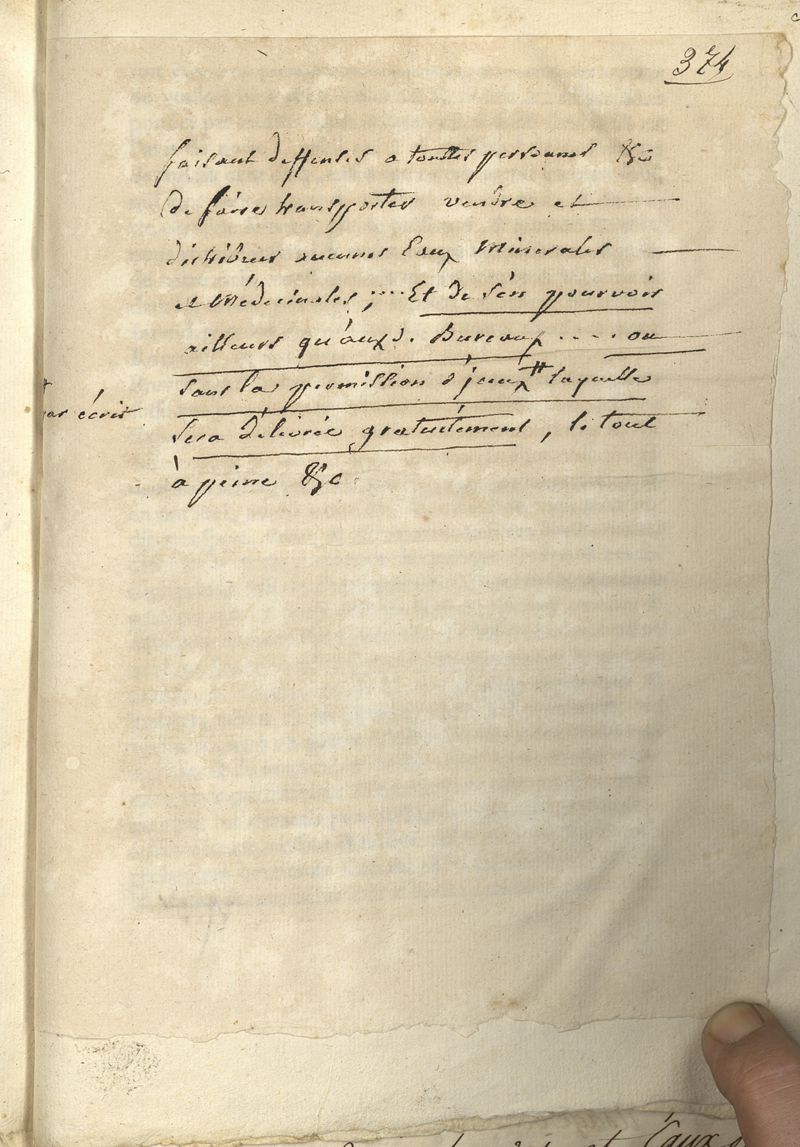 374
faisant deffenses a toutes personnes &c
de faire transporter vendre et
distribuer aucunes Eaux Minerales
et Médecinales; .... Et de s'en pourvoir
ailleurs qu'aux d. Bureaux .... ou
sans la permission d'jceux # laquelle
# par écrit
sera délivrée gratuitement, le tout
à peine &c.
Eaux